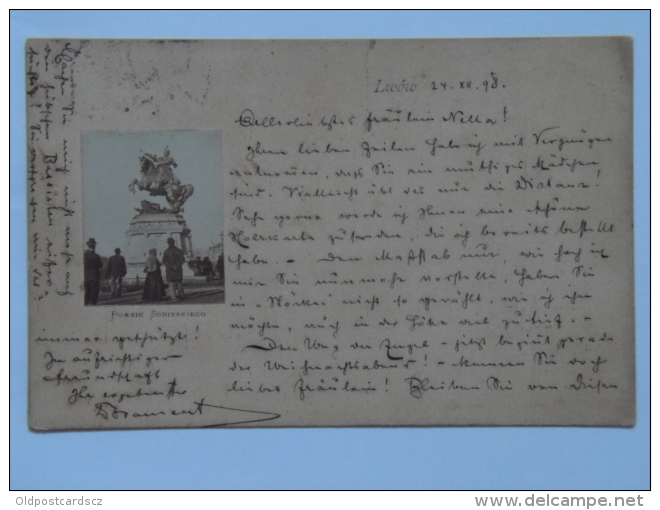 Lwów 24. XII. 98.
Allerliebstes Fräulein Nella!
Ihren lieben Zeilen habe ich mit Vergnügen
entnommen, dass Sie ein muthiges Mädchen
sind. Vielleicht übt das nur die Distanz!
Sehr gerne werde ich Ihnen eine schöne
zusenden, die ich bereits bestellt
habe. - Den Maßstab nur, wie hoch ich
mir Sie nunmehr vorstelle, haben Sie
in "Röcken" nicht so gewählt, wie ich ihn
möchte, auch in der Höhe viel zu tief. -
Den Weg der Engel - jetzt beginnt gerade
der Weihnachtsabend! - kennen Sie doch
liebes Fräulein! Bleiben Sie von diesen
immer geschützt!
In aufrichtiger
Freundschaft
Ihr ergebenster
Sie mich nicht mehr auf
von
Sie
POMNIK SOBIESKIEGO
Oldpostcardscz
delcampe.net